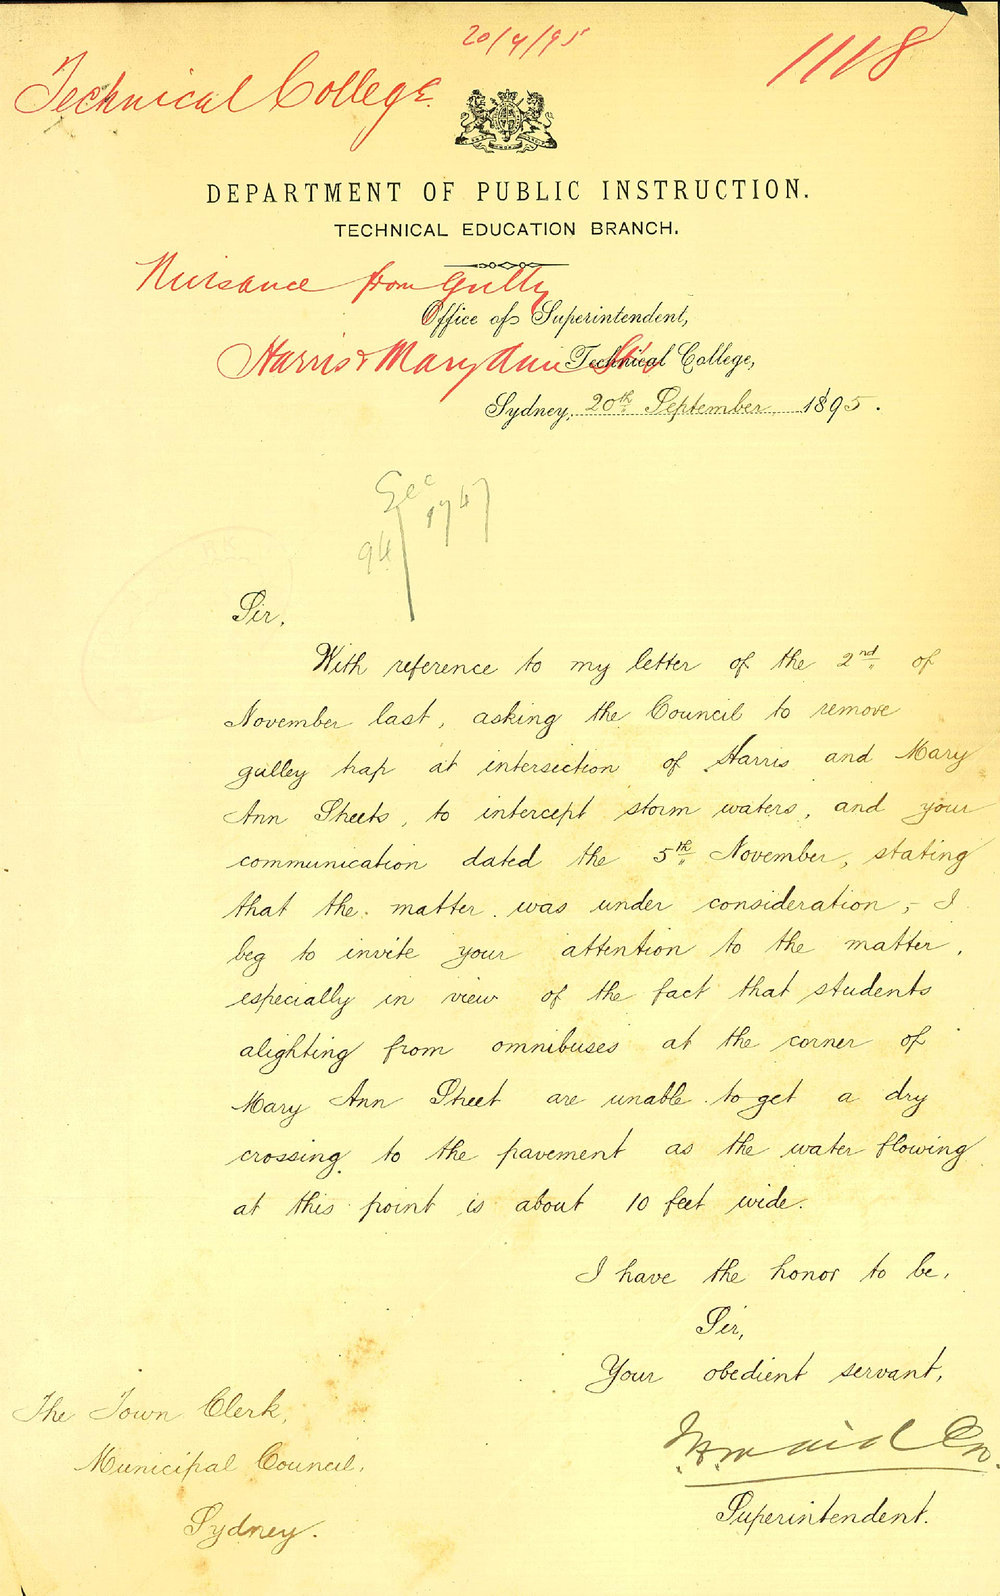 20/9/95
1118
Technical College.
DEPARTMENT OF PUBLIC INSTRUCTION.
TECHNICAL EDUCATION BRANCH.
Nuisance from Gully
Office of Superintendent,
Harris & Mary Ann Sts
Technical College,
Sydney, 20th September 1895.
94/1747
Sir,
With reference to my letter of the 2nd of
November last, asking the Council to remove
gulley trap at intersection of Harris and Mary
Ann Streets, to intercept storm waters, and your
communication dated the 5th November, stating
that the matter was under consideration, - I
beg to invite your attention to the matter,
especially in view of the fact that students
alighting from omnibuses at the corner of
Mary Ann Street are unable to get a dry
crossing to the pavement as the water flowing
at this point is about 10 feet wide.
I have the honor to be,
Sir,
Your obedient servant,
Superintendent.
The Town Clerk,
Municipal Council,
Sydney.